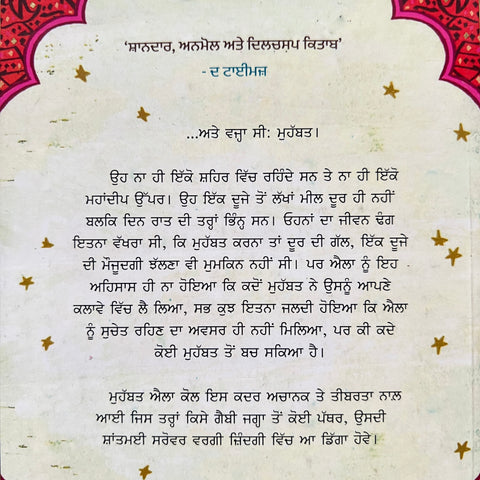 ‘ਸ਼ਾਨਦਾਰ, ਅਨਮੋਲ ਅਤੇ ਦਿਲਚਸਪ ਕਿਤਾਬ’
- ਦ ਟਾਈਮਜ਼
...ਅਤੇ ਵਜ੍ਹਾ ਸੀ: ਮੁਹੱਬਤ।
ਉਹ ਨਾ ਹੀ ਇੱਕੋ ਸ਼ਹਿਰ ਵਿੱਚ ਰਹਿੰਦੇ ਸਨ ਤੇ ਨਾ ਹੀ ਇੱਕੋ
ਮਹਾਂਦੀਪ ਉੱਪਰ। ਉਹ ਇੱਕ ਦੂਜੇ ਤੋਂ ਲੱਖਾਂ ਮੀਲ ਦੂਰ ਹੀ ਨਹੀਂ
ਬਲਕਿ ਦਿਨ ਰਾਤ ਦੀ ਤਰ੍ਹਾਂ ਭਿੰਨ੍ਹ ਸਨ। ਓਹਨਾਂ ਦਾ ਜੀਵਨ ਢੰਗ
ਇਤਨਾ ਵੱਖਰਾ ਸੀ, ਕਿ ਮੁਹੱਬਤ ਕਰਨਾ ਤਾਂ ਦੂਰ ਦੀ ਗੱਲ, ਇੱਕ ਦੂਜੇ
ਦੀ ਮੌਜੂਦਗੀ ਝੱਲਣਾ ਵੀ ਮੁਮਕਿਨ ਨਹੀਂ ਸੀ। ਪਰ ਐਲਾ ਨੂੰ ਇਹ
ਅਹਿਸਾਸ ਹੀ ਨਾ ਹੋਇਆ ਕਿ ਕਦੋਂ ਮੁਹੱਬਤ ਨੇ ਉਸਨੂੰ ਆਪਣੇ
ਕਲਾਵੇ ਵਿੱਚ ਲੈ ਲਿਆ, ਸਭ ਕੁਝ ਇਤਨਾ ਜਲਦੀ ਹੋਇਆ ਕਿ ਐਲਾ
ਨੂੰ ਸੁਚੇਤ ਰਹਿਣ ਦਾ ਅਵਸਰ ਹੀ ਨਹੀਂ ਮਿਲਿਆ, ਪਰ ਕੀ ਕਦੇ
ਕੋਈ ਮੁਹੱਬਤ ਤੋਂ ਬਚ ਸਕਿਆ ਹੈ।
ਮੁਹੱਬਤ ਐਲਾ ਕੋਲ ਇਸ ਕਦਰ ਅਚਾਨਕ ਤੇ ਤੀਬਰਤਾ ਨਾਲ਼
ਆਈ ਜਿਸ ਤਰ੍ਹਾਂ ਕਿਸੇ ਗੈਬੀ ਜਗ੍ਹਾ ਤੋਂ ਕੋਈ ਪੱਥਰ, ਉਸਦੀ
ਸ਼ਾਂਤਮਈ ਸਰੋਵਰ ਵਰਗੀ ਜ਼ਿੰਦਗੀ ਵਿੱਚ ਆ ਡਿੱਗਾ ਹੋਵੇ।